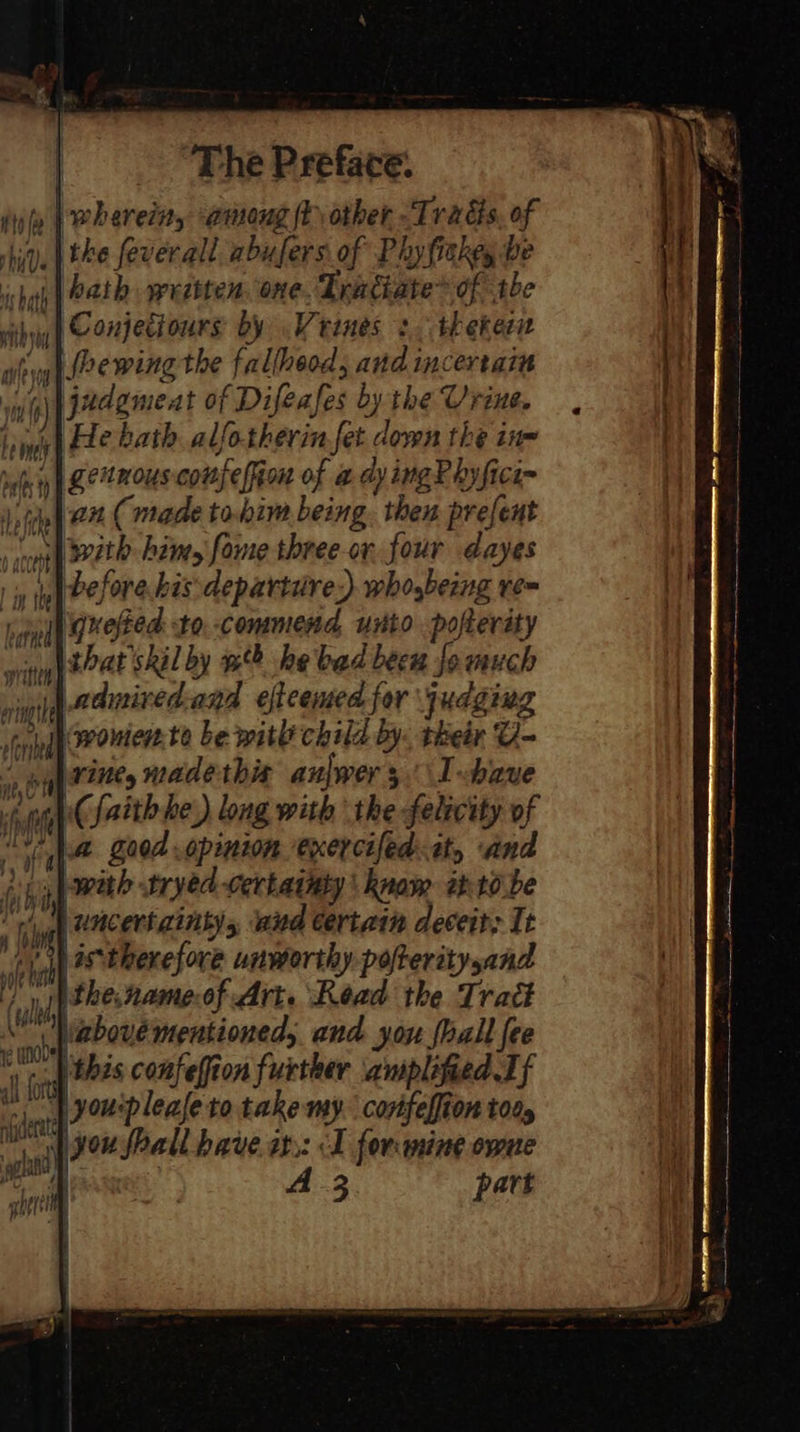 The Preface.
wherein, among ſt other Tracts of
the ſeverall abuſers of Phyſicke, he
hath written one Tractate of the
Conjectours by Vrines : therein
ſhewing the falſhood, and incertain
judgment of Diſeaſes by the Urine.
He hath alſo therin ſet down the in-
genuous confeſſion of a dying Phyſici-
an (made to him being then preſent
with him, ſome three or four dayes
before his departure) who, being re-
queſted to commend unto poſterity
that skil by wᶜʰ he had been ſo much
admired and eſteemed for judging
women to be with child by their U-
rine, made this anſwer ; I have
(ſaith he) long with the felicity of
a good opinion exerciſed it, and
with tryed certainty know it to be
uncertainty, and certain deceit: It
is therefore unworthy poſterity, and
the name of Art. Read the Tract
above mentioned, and you ſhall ſee
this confeſſion further amplified. If
you pleaſe to take my confeſſion too,
you ſhall have it : I for mine owne
A 3 part